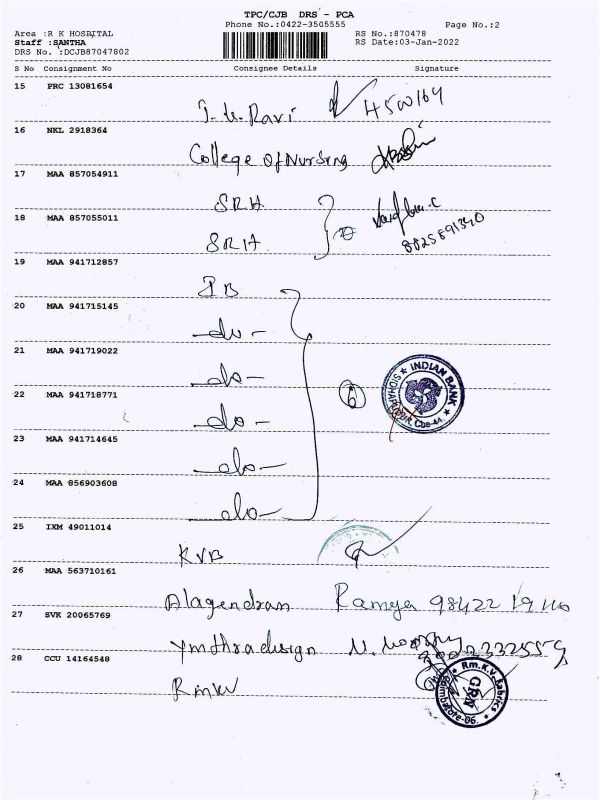 TPC/CJB DRS - PCA
Phone No.:0422-3505555 Page No.:2
Area :R K HOSPITAL RS No.:870478
Staff :SANTHA RS Date:03-Jan-2022
DRS No. :DCJB87047802
S No Consignment No Consignee Details Signature
15 PRC 13081654
Ravi
16 NKL 2918364
College of Nursing
17 MAA 857054911
SRH
18 MAA 857055011
SRH
19 MAA 941712857
IB
20 MAA 941715145
-do-
21 MAA 941719022
-do-
22 MAA 941718771
-do-
6
INDIAN BANK
23 MAA 941714645
-do-
24 MAA 856903608
-do-
25 IXM 49011014
KVB
26 MAA 563710161
Alagendran Ramya
27 SVK 20065769
28 CCU 14164548
RMKV
Rm.K.V. Fabrics
GRN
Coimbatore-86.